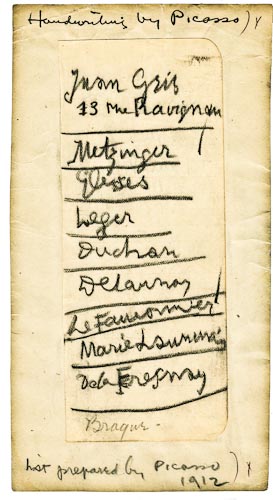 Handwriting by Picasso) x
Juan Gris
13 rue Ravignan
Metzinger
Gleizes
Leger
Duchan
Delaunay
Le Fauconnier
Marie Laurencin
De la Fresnay
Braque -
List prepared by Picasso) x
1912